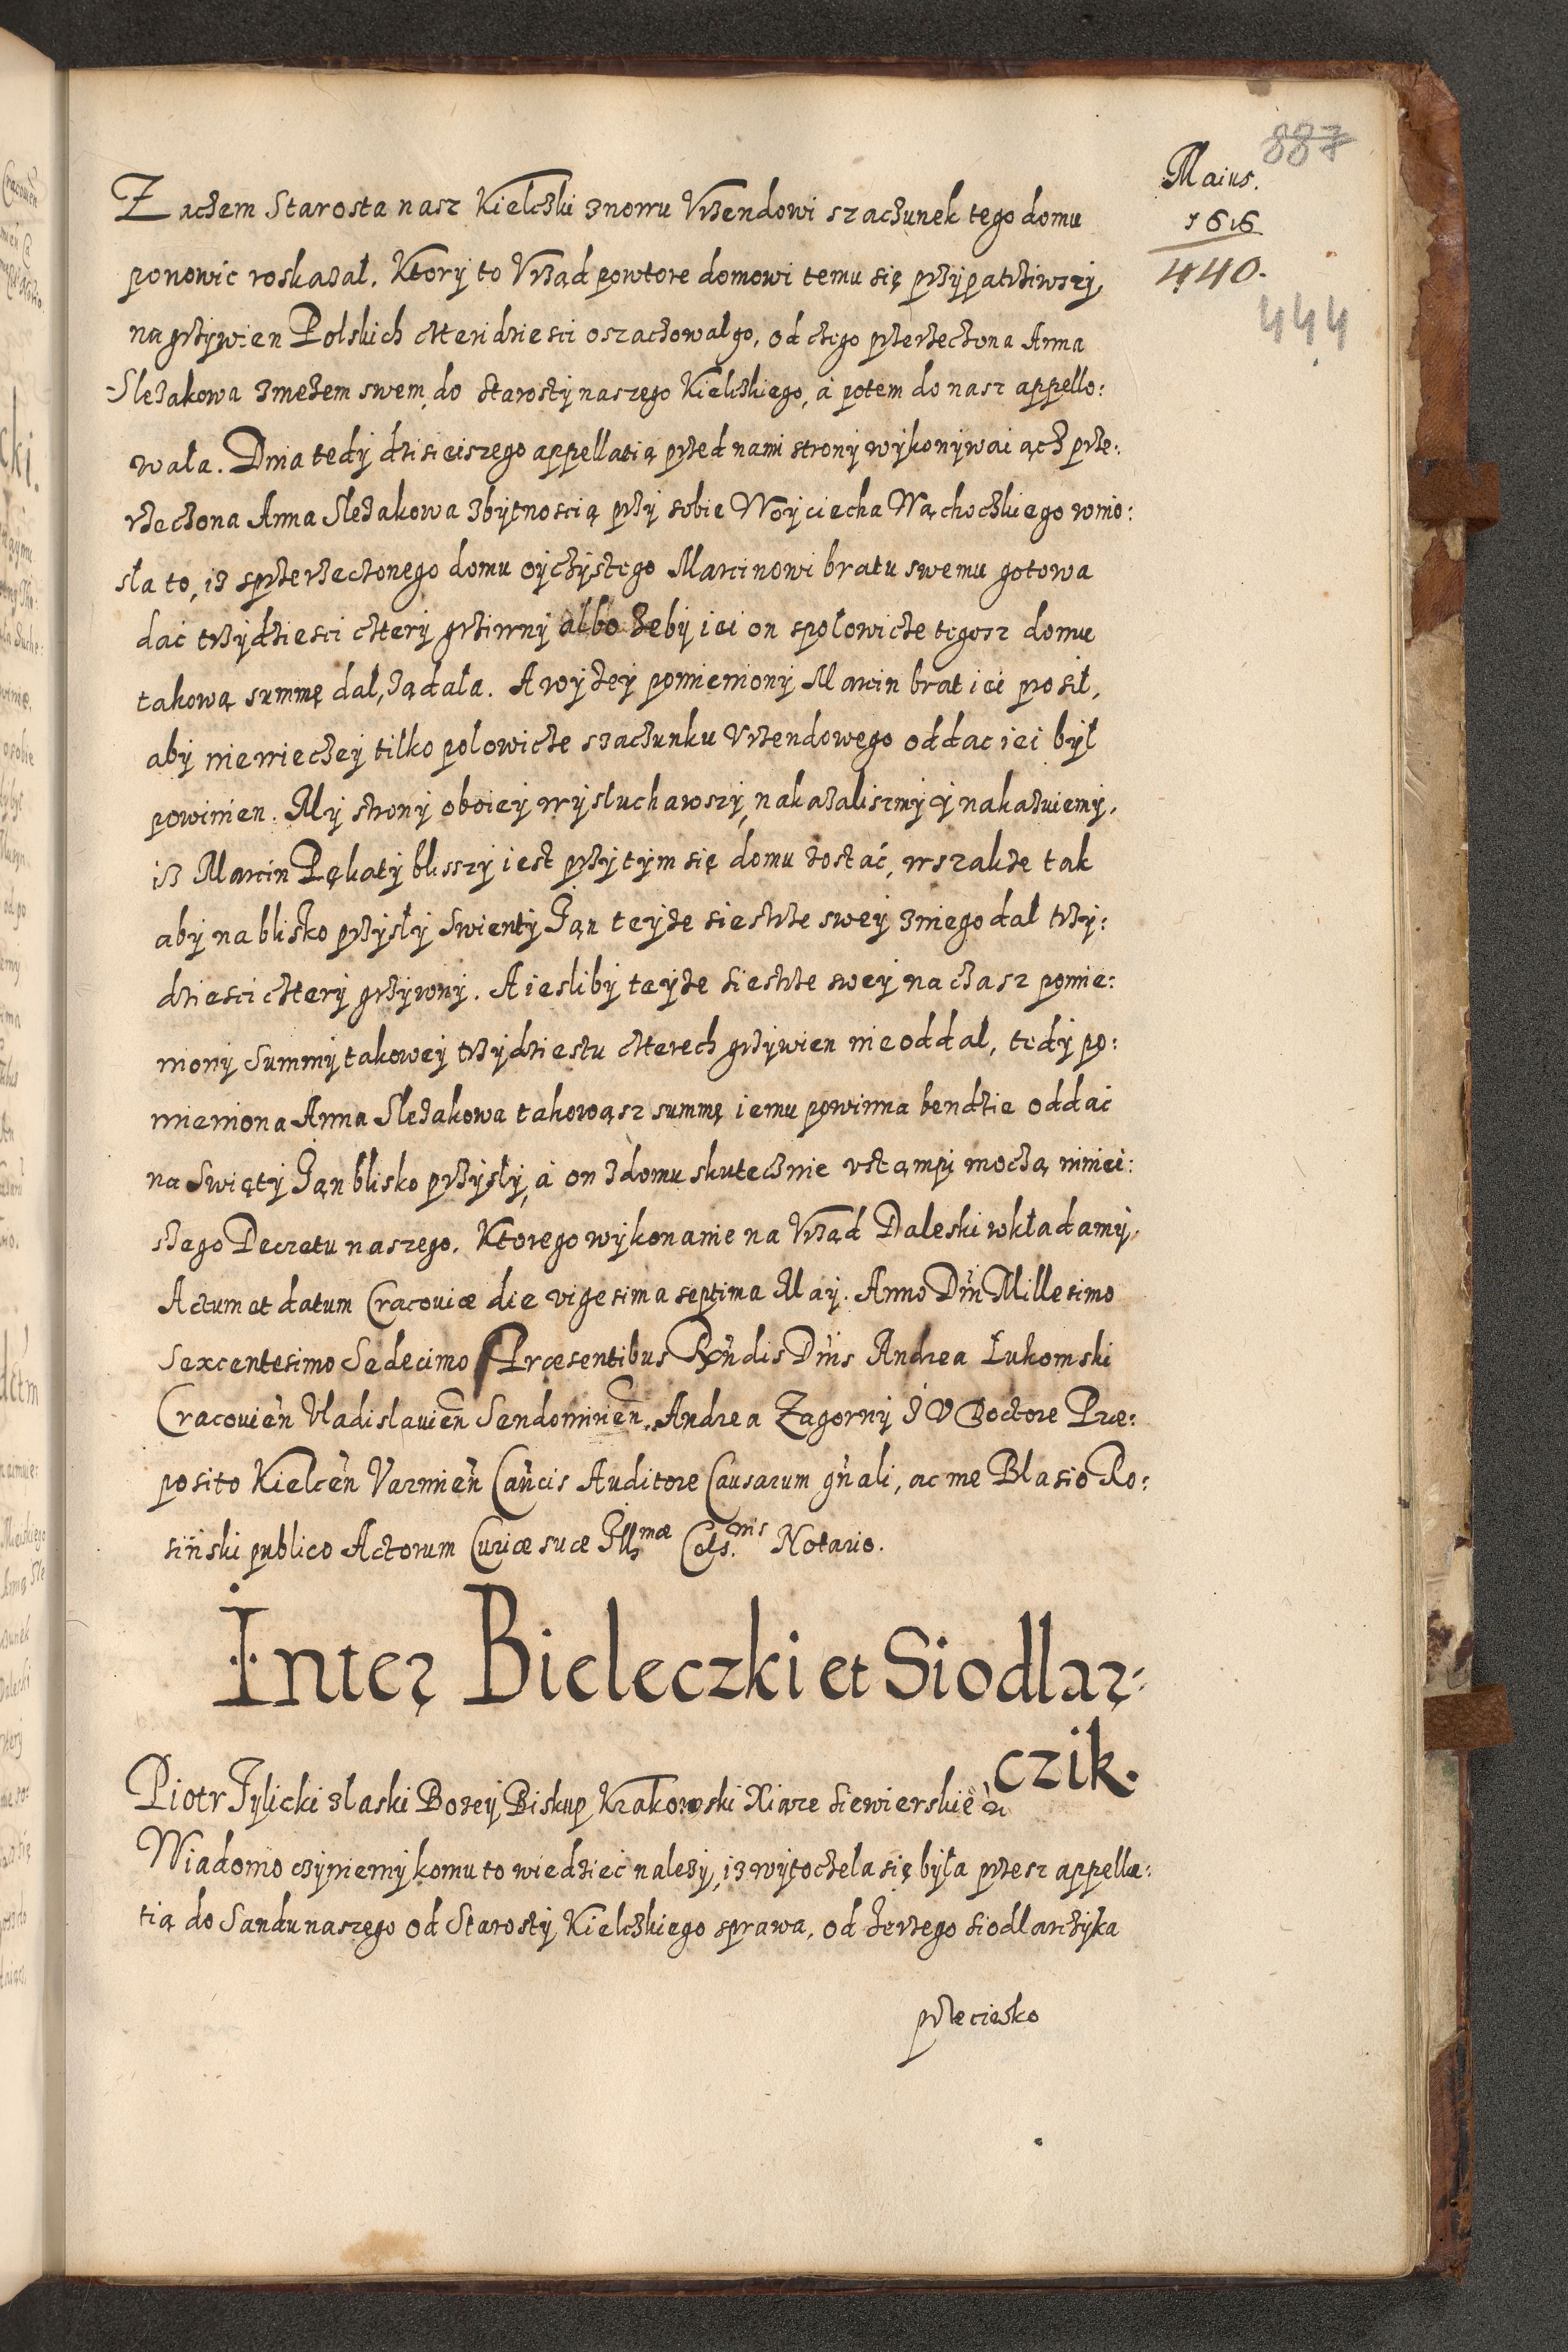 887
Maius.
1616
440.
444
Zaczem Starosta nasz Kielczki znowu Vrzendowi szaczunek tego domu
ponowic roskazał. Ktory to Vrząd powtore domowi temu się przypatrziwszy,
na grziwien Polskich czteridziesci oszaczowal go, od czego przerzeczona Anna
Slezakowa z mezem swem, do Starosty naszego Kielczkiego, á potem do nasz appello:
wała. Dnia tedy dzisieiszego appellatią przed nami strony wykonywaiącz prze:
rzeczona Anna Slezakowa z bytnoscią przy sobie Woyciecha Wąchoczkiego wnio:
sła to, iz z przerzeczonego domu oyczystego Marcinowi bratu swemu gotowa
dać trzydziesci cztery grziwny albo zeby iei on spolowicze tegosz domu
takową summę dal, ządała. A wyzey pomięniony Marcin brat iei prosił,
aby niewieczey tilko polowicze szaczunku Vrzendowego oddac iei był
powinien. My strony oboiey wysłuchawszy, nakazaliszmy y nakazuiemy,
iz Marcin Pękaty blisszy iest przy tym się domu zostać, wszakze tak
aby na blisko przysły Swienty Jąn teyze siestrze swey z niego dał trzy:
dziesci cztery grzywny. A iesliby teyze siestrze swey na czasz pomie:
niony Summy takowey trzydziestu czterech grzywien nie oddał, tedy po:
mieniona Anna Slezakowa takowąsz summę iemu powinna bendzie oddac
na Swięty Jąn blisko przysły, á on z domu skutecznie vstąmpi moczą niniei:
szego Decretu naszego. Ktorego wykonanie na Vrząd Daleski wkładamy.
Actum et datum Cracouiæ die vigesima septima May. Anno Dni Millesimo
Sexcentesimo Sedecimo Præsentibus Rndis Dnis Andrea Łukomski
Cracouien Vladislauien Sendomirien. Andrea Zagorny J V Doctore Præ:
posito Kielcen Varmien Cancis Auditore Causarum gnali, ac me Blasio Ro:
sinski publico Actorum Curiæ suæ Illmæ Cels.nis Notario.
Inter Bieleczki et Siodlar:
czik.
Piotr Tylicki z laski Bozey Biskup Krakowski Xiąze Siewierskie &
Wiadomo czyniemy komu to wiedziec nalezy, iz wytoczela się była przesz appella:
tią do Sandu naszego od Starosty Kielczkiego sprawa, od Jerzego Siodlarczyka
przeciwko